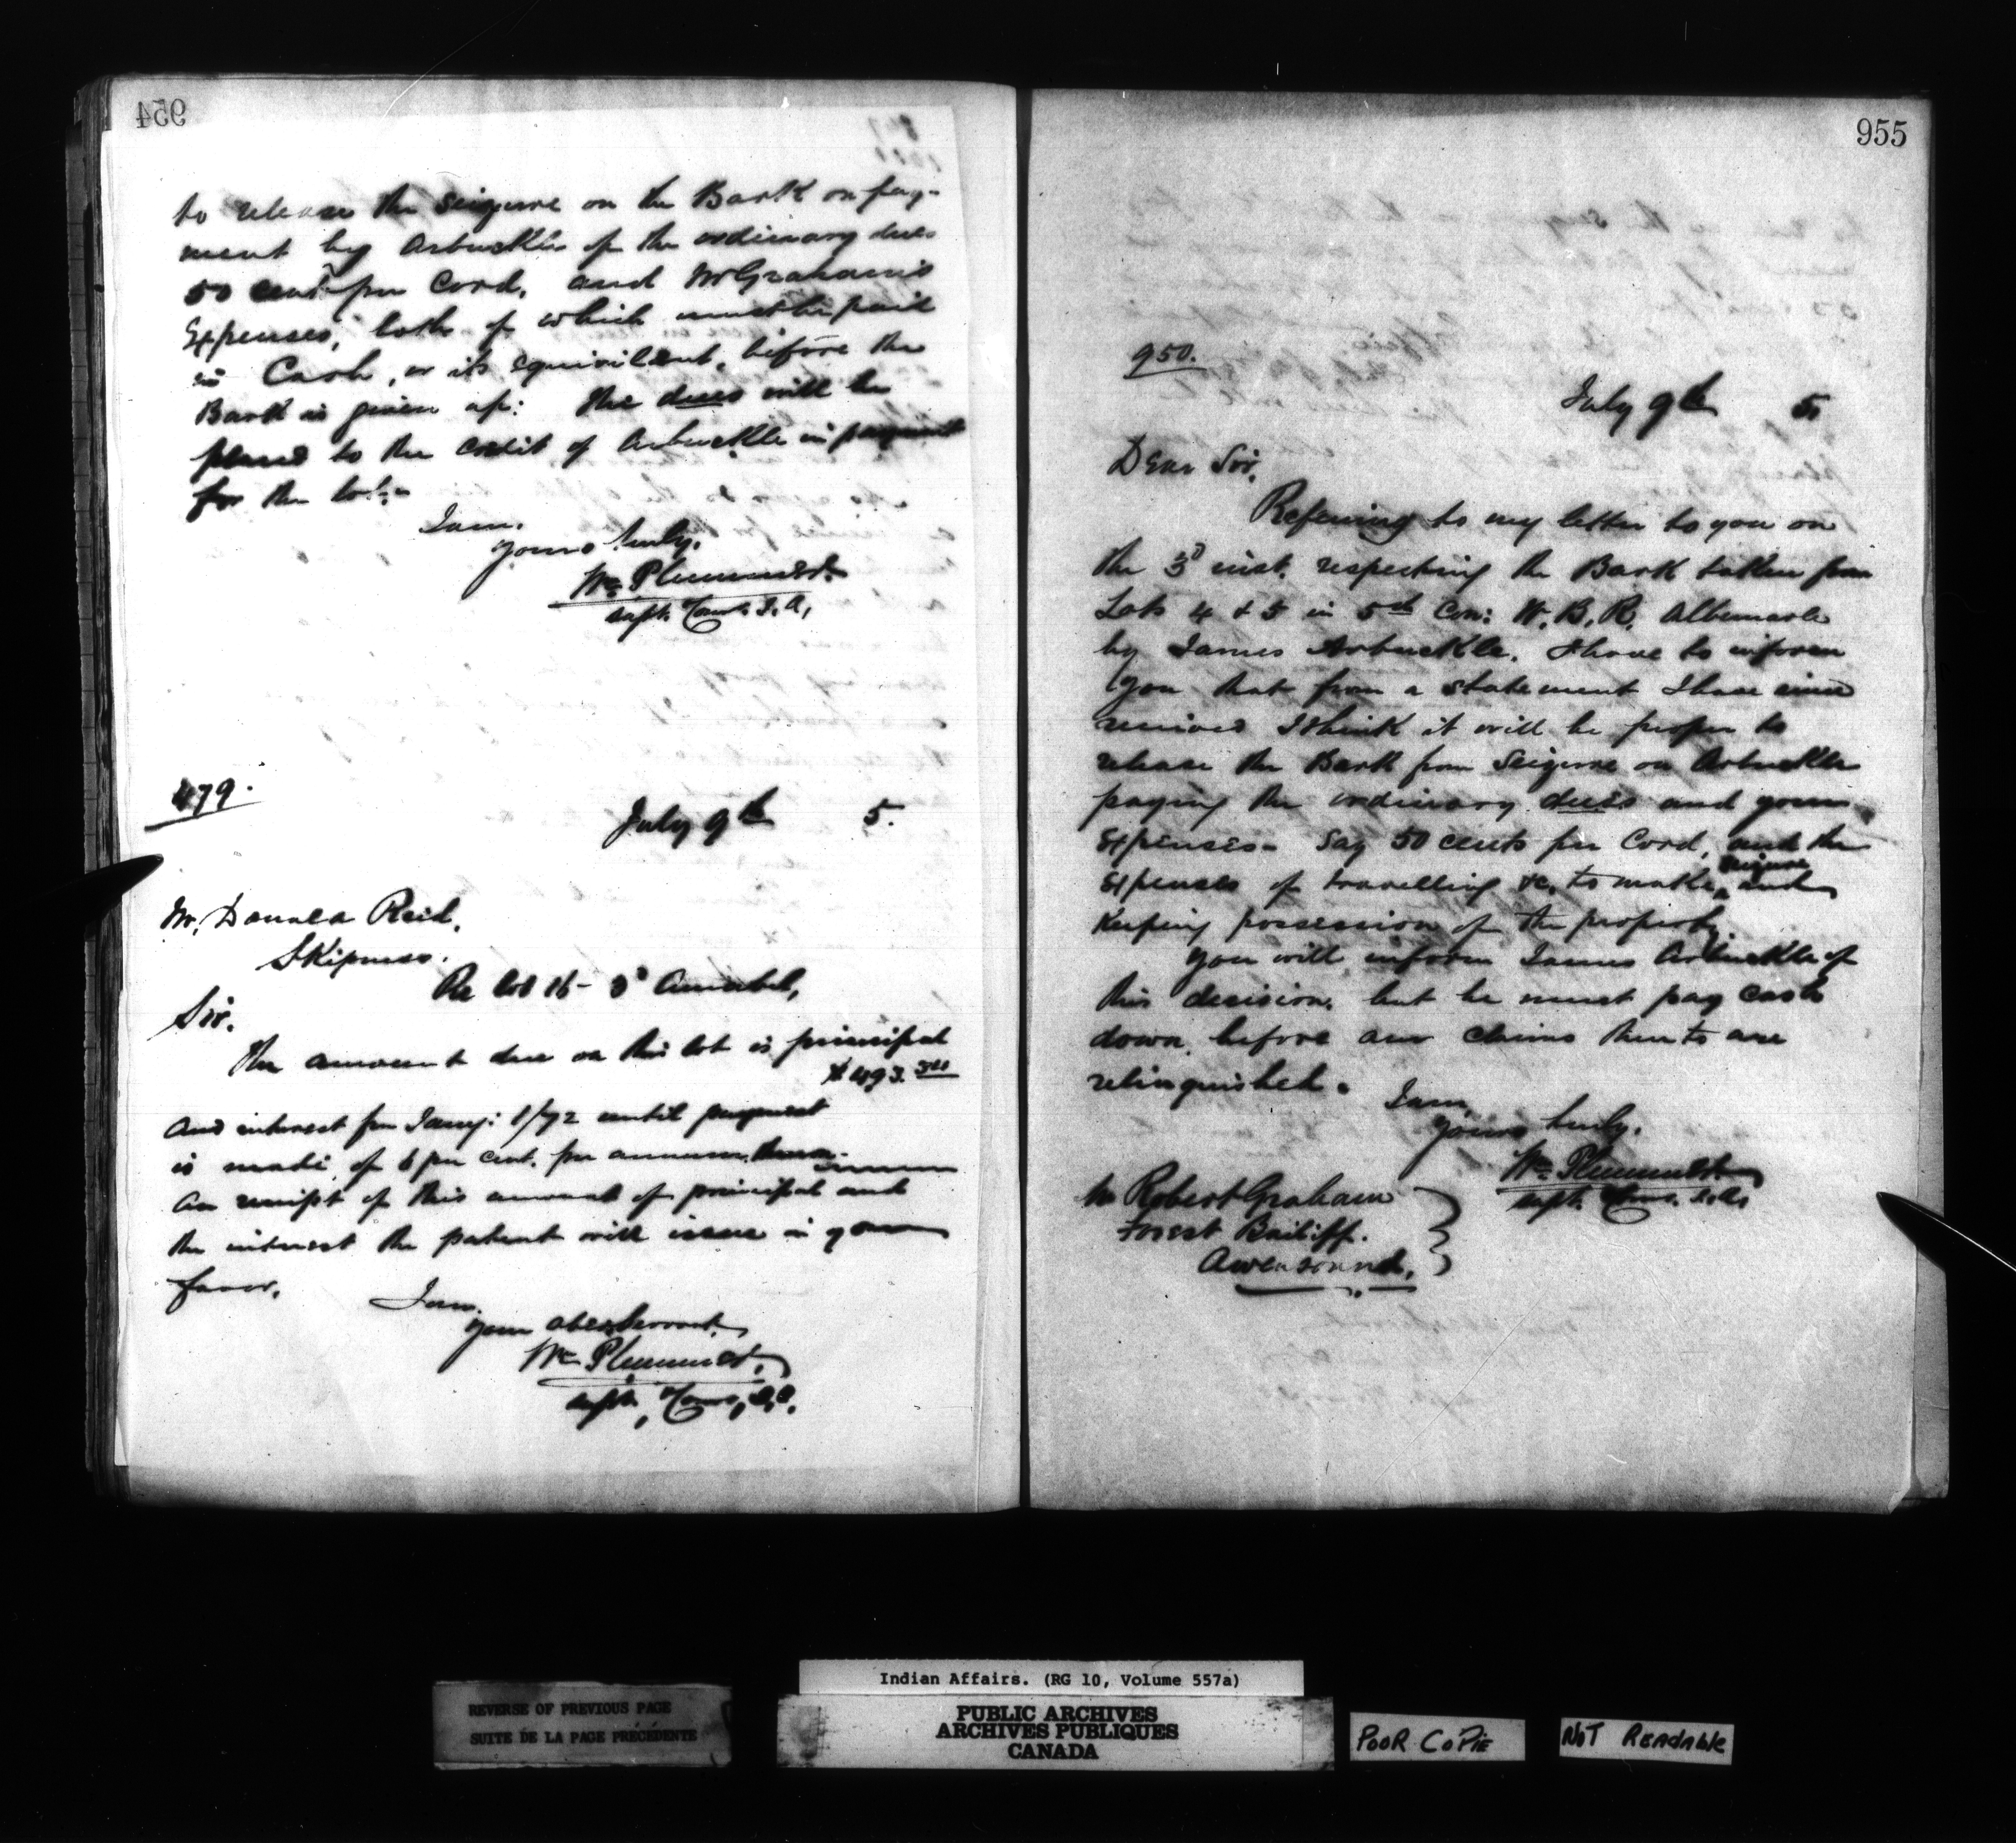 954
to release the seizure on the Bark on pay-
ment by Arbuckle of the ordinary dues
50 cents per Cord, and Mr Graham's
Expenses, both of which must be paid
in Cash, or its equivilent, before the
Bark is given up: The dues will be
placed to the credit of Arbuckle in payment
for the lot.
I am.
Yours truly,
Wm Plummer
Supt. Comr. I.A.
479.
July 9th 5.
Mr. Donald Reid,
Skipness.
Re lot 16 - 3d Amabel,
Sir.
The amount due on this lot is principal
$493.
and interest from Jany: 1/72 until payment
is made, of 6 per cent. per annum.
On receipt of this amount of principal and
the interest the patent will issue in your
favor.
I am.
Your obed Servant,
Wm Plummer,
Supt, Comr, I.A.
955
950.
July 9th 5
Dear Sir,
Referring to my letter to you on
the 3d inst. respecting the Bark taken from
Lots 4 & 5 in 5th Con: W.B.R. Albemarle
by James Arbuckle. I have to inform
you that from a statement I have since
received I think it will be proper to
release the Bark from Seizure on Arbuckle
paying the ordinary dues and your
Expenses - Say 50 cents per Cord, and the
Expenses of travelling &c. to make seizure and
Keeping possession of the property
You will inform James Arbuckle of
this decision, but he must pay cash
down, before our claims thereto are
relinquished.
I am,
Yours truly,
Wm Plummer
Supt. Comr. I.A.
Mr Robert Graham
Forest Bailiff.
Owen Sound,
Indian Affairs. (RG 10, Volume 557a)
REVERSE OF PREVIOUS PAGE
SUITE DE LA PAGE PRÉCÉDENTE
PUBLIC ARCHIVES
ARCHIVES PUBLIQUES
CANADA
POOR COPIE
NOT READABLE